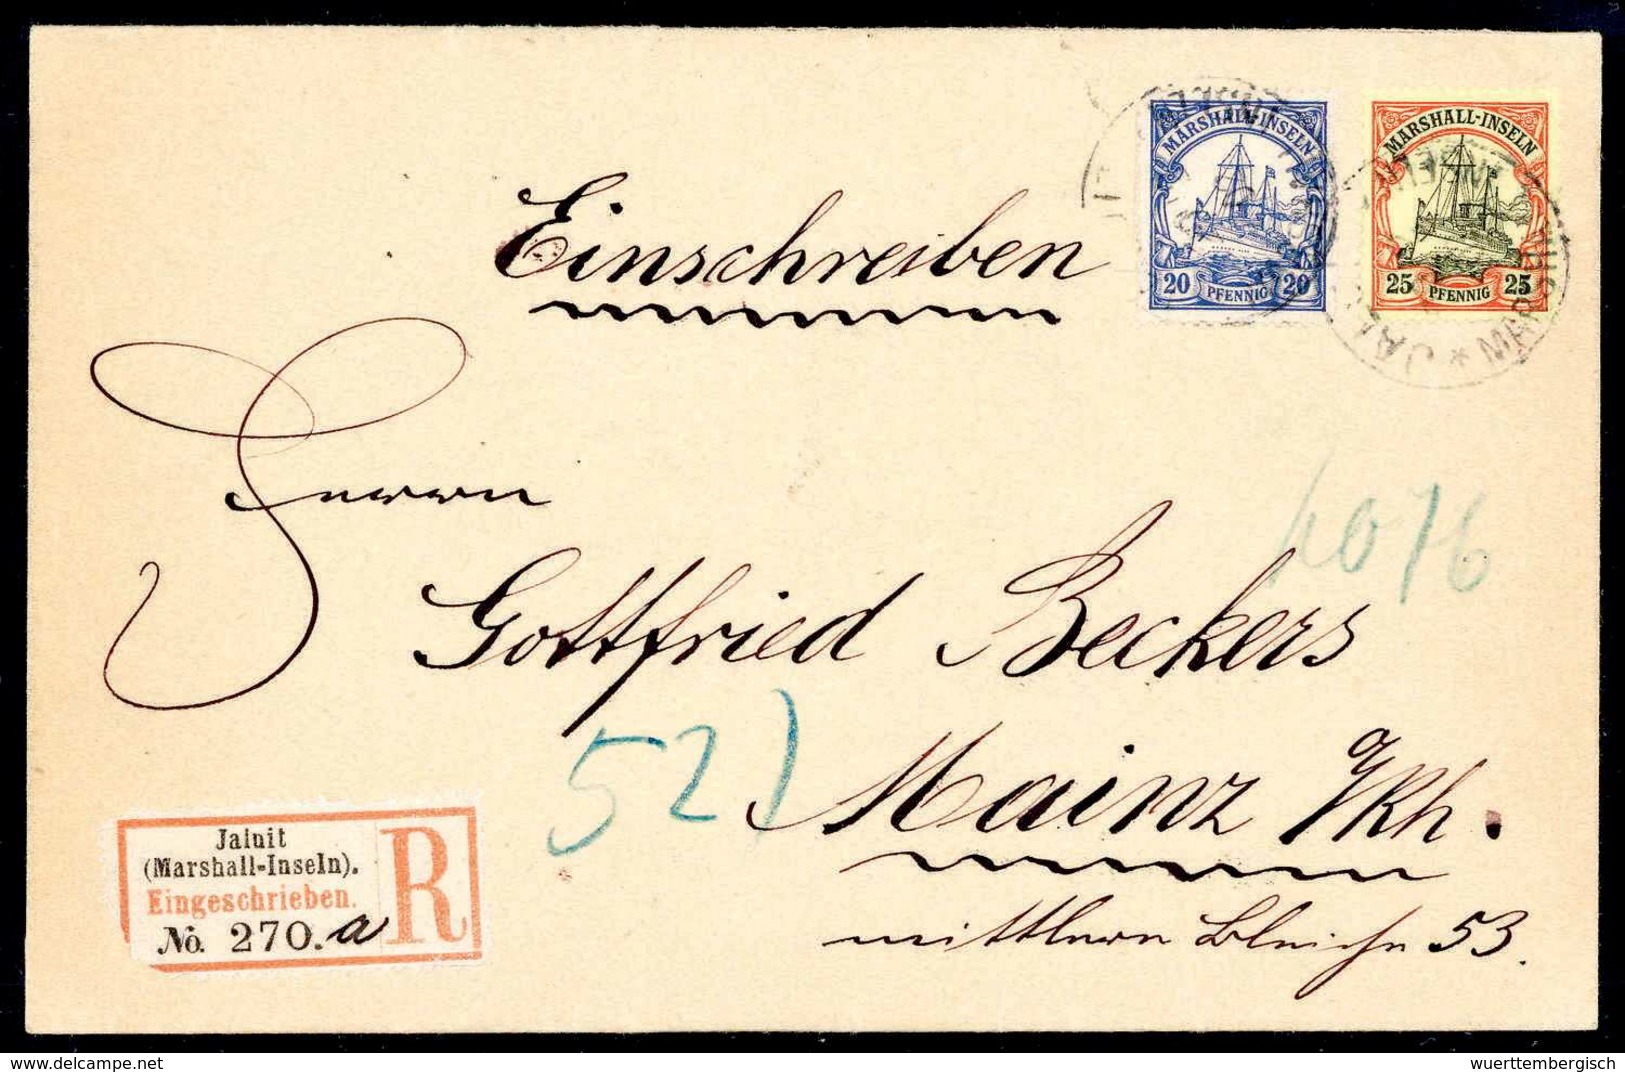 MARSHALL-INSELN
20 PFENNIG 20
MARSHALL-INSELN
25 PFENNIG 25
Einschreiben
Herrn
Gottfried Beckers
Mainz a/Rh.
mittlere Bleiche 53.
521
Jaluit
(Marshall-Inseln).
Eingeschrieben.
No. 270. a
R
delcampe.net
wuerttembergisch